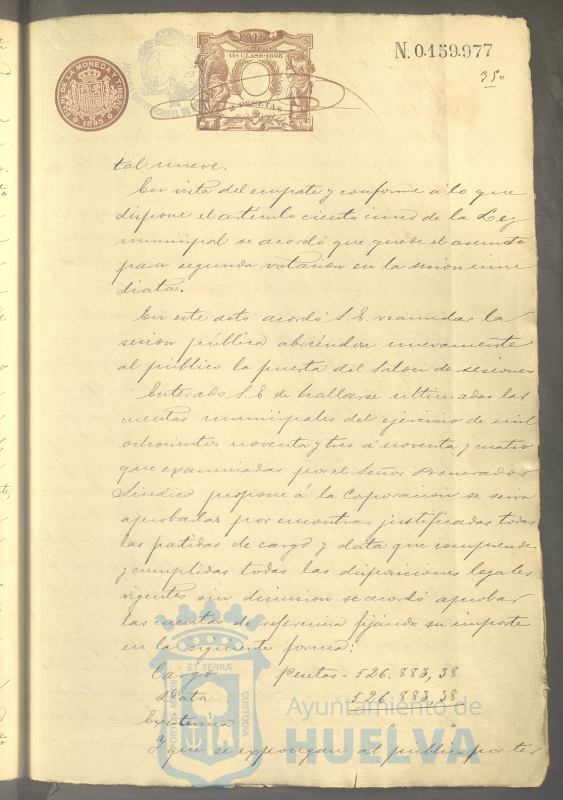 N. 0.159.977
11ª CLASE-1895
2 PESETAS
1895
tal nueve.
En vista del empate y conforme á lo que
dispone el artículo ciento cinco de la Ley
municipal se acordó que quede el asunto
para segunda votacion en la sesion inme
diata.
En este acto acordó S.E. reanudar la
sesion pública abriéndose nuevamente
al público la puerta del Salon de sesiones
Enterado S.E. de hallarse ultimadas las
cuentas municipales del ejercicio de mil
ochocientos noventa y tres á noventa y cuatro
que examinadas por el Señor Procurador
Sindico propone á la Coporacion se sirva
aprobarlas por encontrar justificadas todas
las partidas de cargo y data que comprende
y cumplidas todas las disposiciones legales
vigentes sin discusion se acordó aprobar
las cuentas de referencia fijando su importe
en la siguiente forma:
Cargo pesetas - 526.883,38
Data 526.883,38
Existencia " "
Y que se expongan al público por ter
PORTUS MARIS
ET TERRÆ
CUSTODIA
Ayuntamiento de
HUELVA